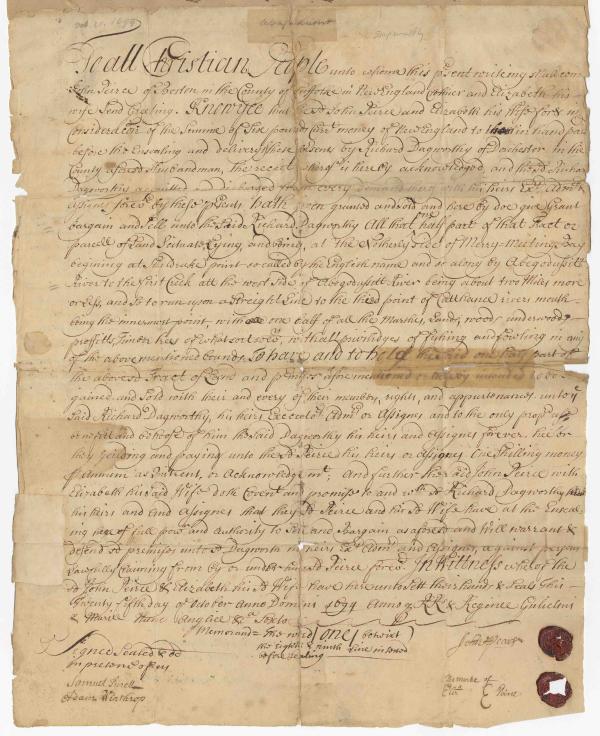 Oct. 25. 1694
To all Christian People unto whome this p'sent writeing shall com
John Peirce of Boston in the County of Suffolk in New England and Elizabeth his
wife Send Greeting. Know yee that the sd John Peirce and Elizabeth his Wife for & in
Consideracon of the Summe of Six pounds Curr't money of New England to in hand paid
before the Ensealing and delivery of these p'sents by Richard Dagworthy of Dorchester in the
County afores'd Husbandman, the receit whereof is hereby acknowledged, and the sd Richard
Dagworthy acquitted and discharged from every demand his heirs Exec's Adm's
Assignes forev'r by these p'sents hath given granted and and hereby doe give Grant
bargain and Sell unto the Said Richard Dagworthy All that half part of that Tract or
parcell of Land Scituate Lying and being, at the Northerly Side of Merry-Meeting Bay
begining at Sheldrake point so called by the English name and so along by Abegadussitt
River to the first Creek all the west Side of Abegadussitt River being about two Miles more
or less, and So to run upon a Streight Line to the third point of River mouth
being the innermost point, with one half of all the Marshes, Lands, woods underwoods
proffitts, Timber trees of what sort soev'r, with all priviledges of fishing and fowling in any
of the above mentioned bounds, To have and to hold the said one half part of
the aboves'd Tract of Land and p'misses afore mentioned or hereby intended to be
gained and Sold with their and every of their members, rights, and appurtenances unto ye
Said Richard Dagworthy, his heirs Execcuto's Adm's or Assignes and to the only prop'r use
benefitt and behoofe of him the said Dagworthy his heirs and Assignes forever. hee or
they yeilding and paying unto the sd Peirce his heirs or Assignes One Shilling money
p' annum as Quitrent, or Acknowledgm't; And further the said John Peirce with
Elizabeth his said Wife doth Coven't and promise to and with sd Richard Dagworthy
his heirs and Assignes that they sd Peirce and his sd Wife have at the Enseal
ing hereof full pow'r and Authority to Sell and Bargain as afores'd and Will warrant &
defend sd p'misses unto sd Dagworth his heirs Ex's Adm's and Assignes, against p'sons
Lawfully Claiming from by or under him sd Peirce forev'r. In Witness whereof the
sd John Peirce & Elizabeth his sd Wife have hereunto Sett their hands & Seals this
Twenty fifth day of October Anno Domini 1694 Annoq RR's & Reginee Gulielmi
& Marie Angliee &c Sexto
Memorand' the word [one] betwixt
the eighth & ninth Line interred
before Sealing
Signed Sealed & de
in presence of us
Samuel
Adam Winthrop
John Pearse
the marke of
Eliz Peirce